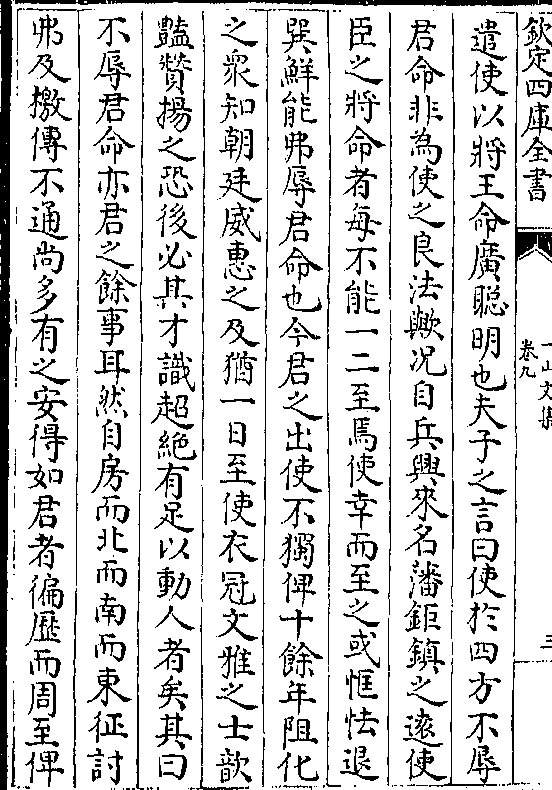 欽定四庫全書
一山文集
卷九
三
遣使以將王命廣聰明也夫子之言曰使於四方不辱
君命非為使之良法歟况自兵興來名藩鉅鎮之遠使
臣之將命者每不能一二至焉使幸而至之或恇怯退
巽鮮能弗辱君命也今君之出使不獨俾十餘年阻化
之衆知朝廷威惠之及猶一日至使衣冠文雅之士歆
豔贊揚之恐後必其才識超絶有足以動人者矣其曰
不辱君命亦君之餘事耳然自房而北而南而東征討
弗及檄傳不通尚多有之安得如君者徧歴而周至俾